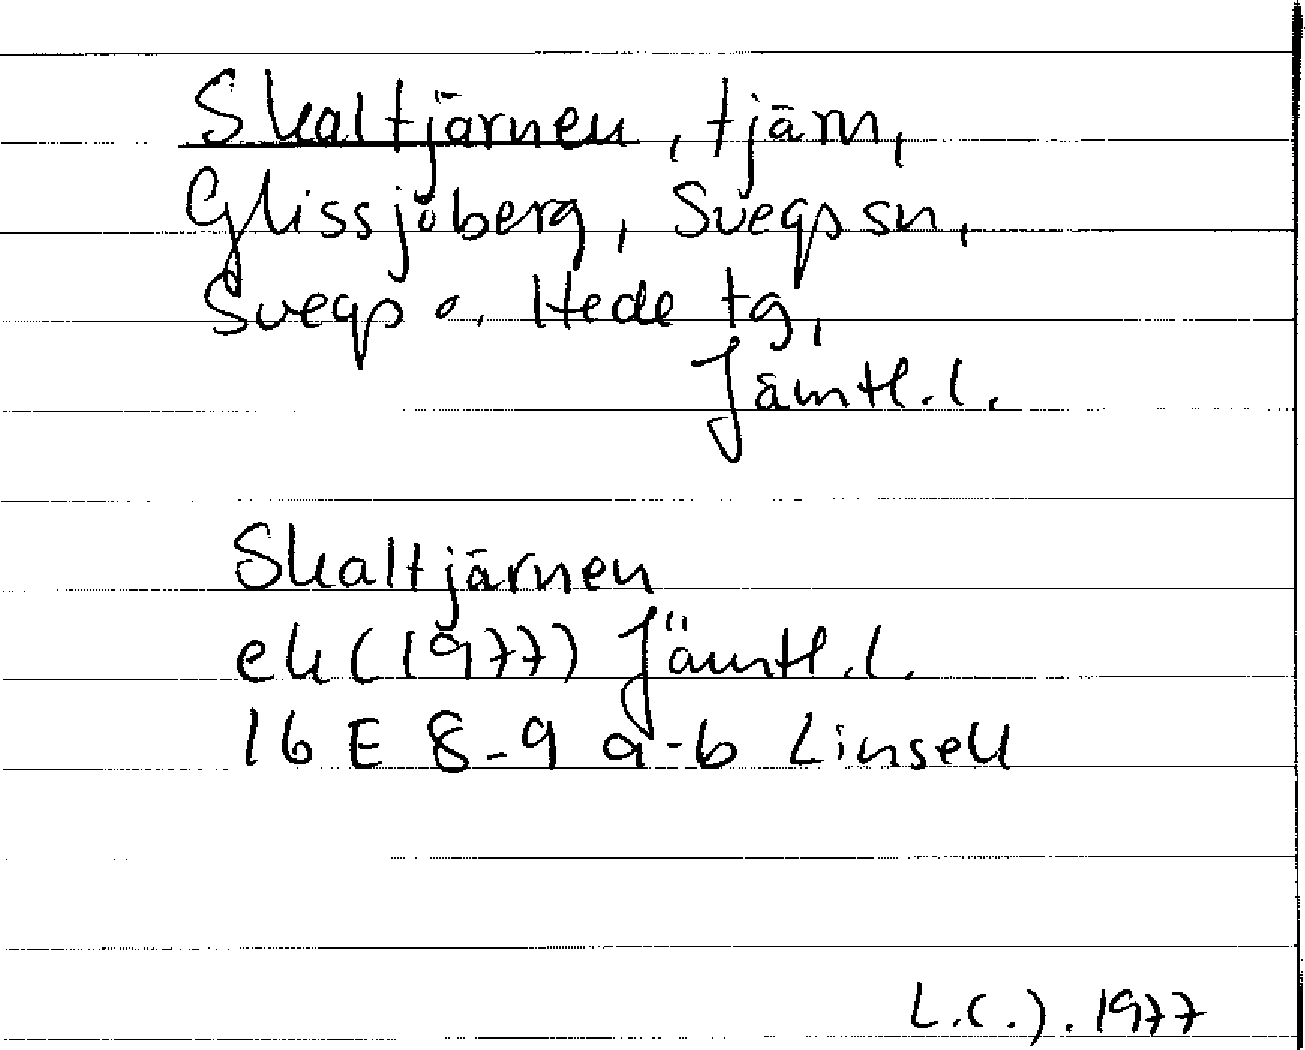 Skaltjärnen, tjärn,
Glissjöberg, Svegs sn,
Svegs o. Hede tg,
Jämtl. l.
Skaltjärnen
ek (1977) Jämtl. l.
16 E 8-9 a-b Linsell
L.C.J. 1977